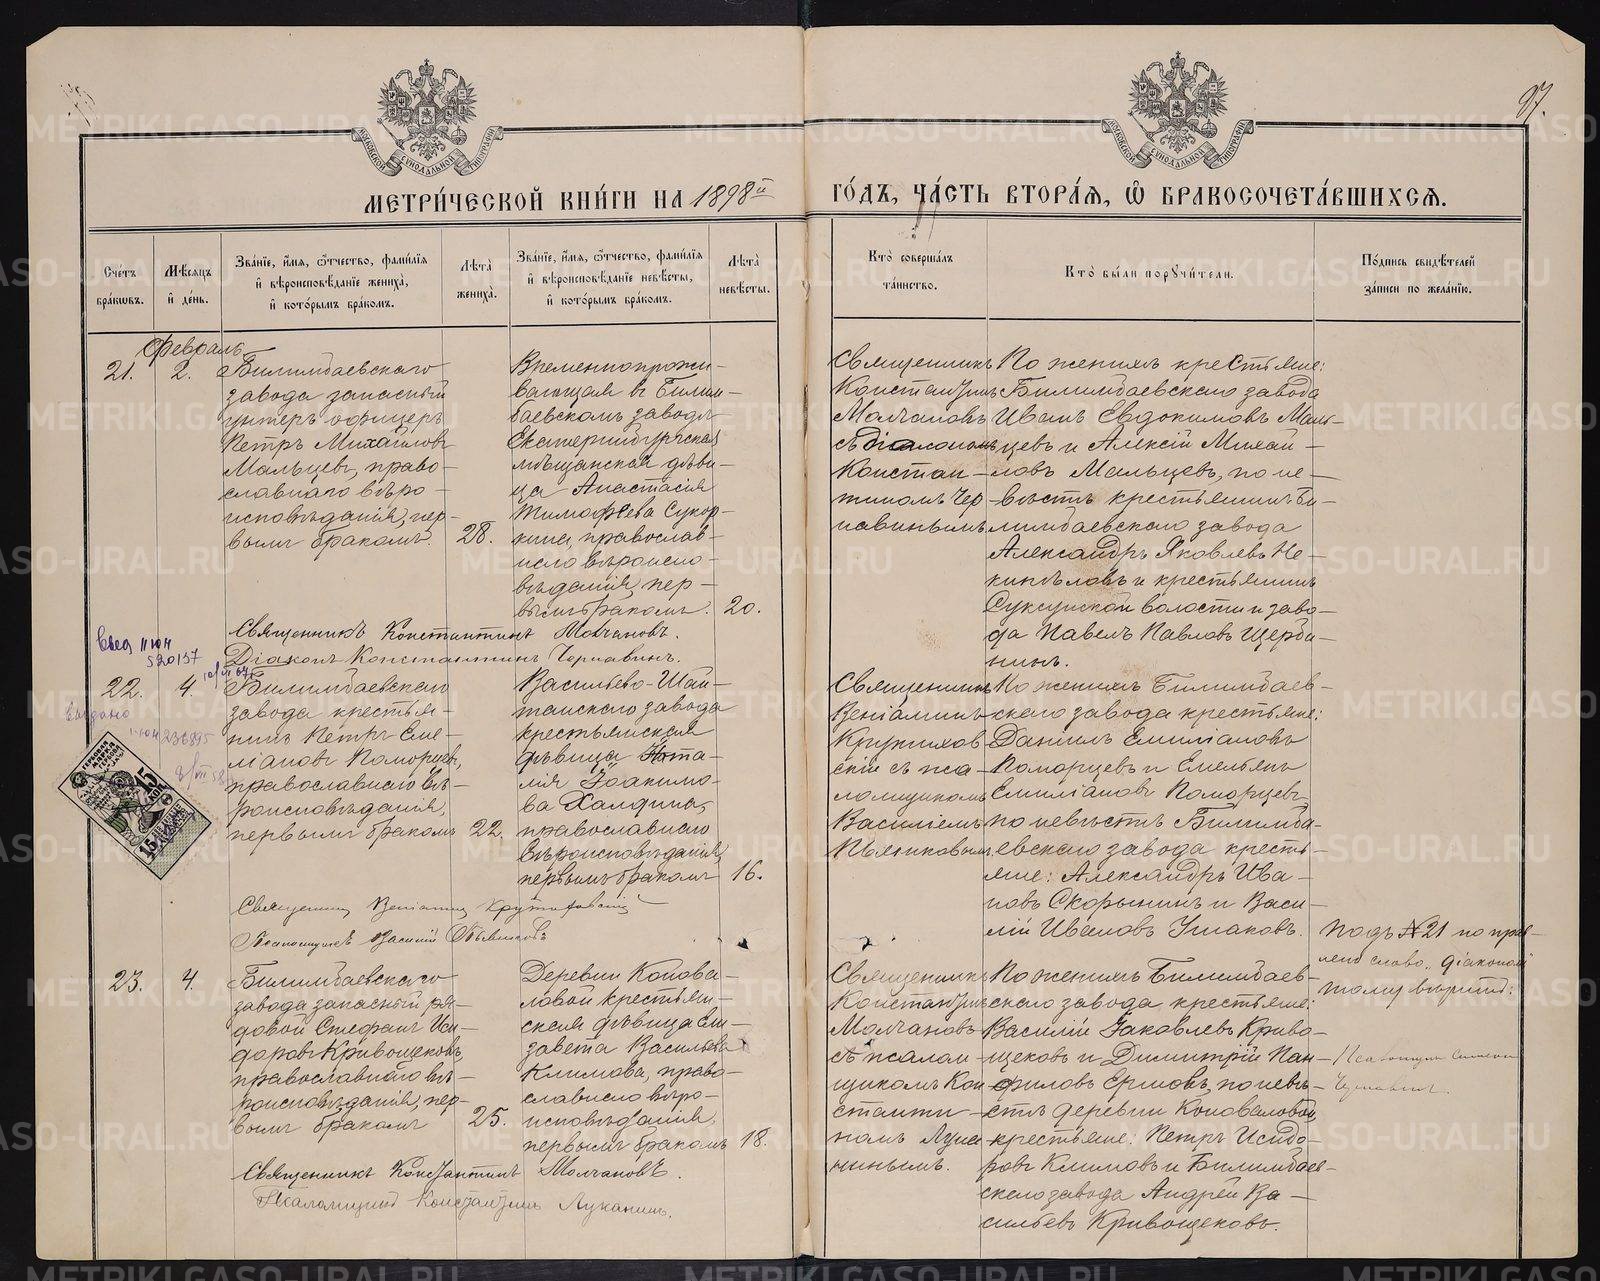 97.
МЕТРИ́ЧЕСКОЙ КНИ́ГИ НА 1898й
ГО́ДЪ, ЧА́СТЬ ВТОРА́Я, Ѿ БРАКОСОЧЕТА́ВШИХСЯ.
Сче́тъ бра́ковъ.
Мѣ́сяцъ и҆ де́нь.
Зва́нїе, и҆́мя, ѻ҆́тчество, фами́лїя
и҆ вѣроисповѣ́данїе жениха̀,
и҆ кото́рымъ бра́комъ.
Лѣта̀ жениха̀.
Зва́нїе, и҆́мя, ѻ҆́тчество, фами́лїя
и҆ вѣроисповѣ́данїе невѣ́сты,
и҆ кото́рымъ бра́комъ.
Лѣта̀ невѣ́сты.
Кто̀ соверша́лъ
та́инство.
Кто̀ бы́ли порꙋчи́тели.
По́дпись свидѣ́телей
за́писи по жела́нїю.
Февраль
21.
2.
Билимбаевскаго
завода запасный
унтеръ офицеръ
Петръ Михаиловъ
Мальцевъ, право-
славнаго вѣро-
исповѣданія, пер-
вымъ бракомъ.
28.
Временнопрожи-
вающая въ Билим-
баевскомъ заводѣ
Екатеринбургская
мѣщанская дѣви-
ца Анастасія
Тимофѣева Сукор-
кина, православ-
наго вѣроиспо-
вѣданія, пер-
вымъ бракомъ.
20.
Священникъ
Константинъ
Молчановъ
съ діакономъ
Констан-
тиномъ Чер-
навинымъ
По женихѣ крестьяне:
Билимбаевскаго завода
Иванъ Евдокимовъ Маль-
цевъ и Алексій Михаи-
ловъ Мальцевъ, по не-
вѣстѣ крестьянинъ Би-
лимбаевскаго завода
Александръ Яковлевъ Не-
кипѣловъ и крестьянинъ
Суксунской волости и заво-
да Павелъ Павловъ Щерба-
нинъ.
Священникъ Константинъ Молчановъ.
Діаконъ Константинъ Чернавинъ.
22.
4.
Билимбаевскаго
завода крестья-
нинъ Петръ Еме-
ліановъ Поморцевъ,
православнаго вѣ-
роисповѣданія,
первымъ бракомъ
22.
Васильево-Шай-
танскаго завода
крестьянская
дѣвица Ната-
лія Іоакимо-
ва Халдина,
православнаго
вѣроисповѣданія,
первымъ бракомъ
16.
Священникъ
Веніаминъ
Крутихов
скій съ пса-
ломщикомъ
Василіемъ
Пьянковымъ
По женихѣ Билимбаев-
скаго завода крестьяне:
Даніилъ Емиліановъ
Поморцевъ и Емельянъ
Емиліановъ Поморцевъ
по невѣстѣ Билимба-
евскаго завода кресть-
яне: Александръ Ива-
новъ Скорынинъ и Васи-
лій Ивановъ Ушаковъ.
Священникъ Веніаминъ Крутиховскій
Псаломщикъ Василій Пьянковъ
15 КОП
23.
4.
Билимбаевскаго
завода запасный ря-
довой Стефанъ Иси-
доровъ Кривощековъ,
православнаго вѣ-
роисповѣданія, пер-
вымъ бракомъ
25.
Деревни Конова-
ловой крестьян-
ская дѣвица Ели-
завета Васильева
Климова, право-
славнаго вѣро-
исповѣданія,
первымъ бракомъ
18.
Священникъ
Константинъ
Молчановъ
съ псалом-
щикомъ Кон
стантин-
номъ Лука
нинымъ.
По женихѣ Билимбаев-
скаго завода крестьяне:
Василій Іаковлевъ Криво-
щековъ и Димитрій Пан-
филовъ Ершовъ, по невѣ-
стѣ деревни Коноваловой
крестьяне: Петръ Исидо-
ровъ Климовъ и Билимбаев-
скаго завода Андрей Ва-
сильевъ Кривощековъ.
Подъ №21 по прав-
лено слово „діакономъ
Священникъ Константинъ Молчановъ.
Псаломщикъ Константинъ Луканинъ.